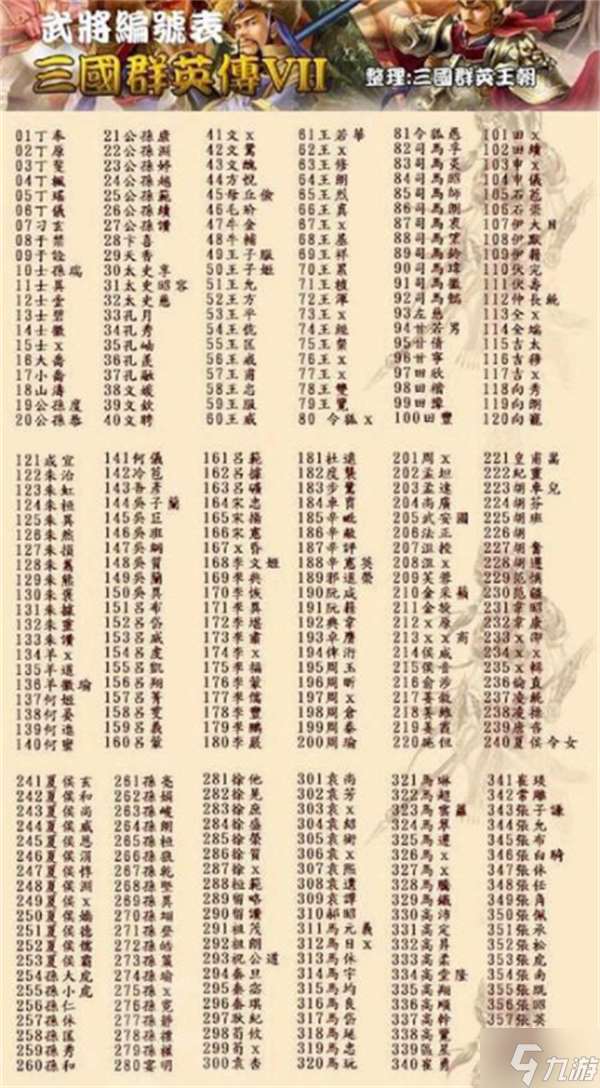 武將編號表
三國群英傳VII
整理:三國群英王朝
01丁奉 21公孫康 41文x 61王若華 81令狐愚 101田x
02丁原 22公孫淵 42文鴦 62王孚 82司馬孚 102田續
03丁斐 23公孫婷 43文醜 63王修 83司馬炎 103申x
04丁楓 24公孫越 44方悅 64王朗 84司馬昭 104申儀
05丁瑤 25公孫範 45毋丘儉 65王烈 85司馬師 105石苞
06丁儀 26公孫續 46毛玠 66王真 86司馬朗 106石崇
07刁玄 27公孫瓚 47牛金 67王x 87司馬衷 107伊大目
08于禁 28卞喜 48牛輔 68王基 88司馬望 108伊默
09于詮 29天香 49王子服 69王祥 89司馬鈴 109伊籍
10士孫瑞 30太史享 50王子姬 70王累 90司馬瑋 110伏完
11士異 31太史昭容 51王允 71王植 91司馬徽 111伏壽
12士壹 32太史慈 52王方 72王渾 92司馬懿 112仲長統
13士碧 33孔月 53王平 73王x 93左慈 113全x
14士徽 34孔秀 54王伉 74王經 94甘若男 114全端
15士x 35孔岫 55王匡 75王粲 95甘倩 115吉太
16大喬 36孔羨 56王威 76王x 96甘寧 116吉穆
17小喬 37孔融 57王甫 77王x 97田欣 117吉x
18山濤 38文媛 58王忠 78王雙 98田楷 118向秀
19公孫度 39文欽 59王服 79王覽 99田豫 119向朗
20公孫恭 40文聘 60王威 80 令狐x 100田豐 120向寵
121成宜 141何儀 161呂範 181杜遠 201周x 221皇甫嵩
122朱治 142冷苞 162呂據 182度襲 202孟坦 222紀靈
123朱虹 143吾彥 163呂曠 183步騭 203孟達 223胡車兒
124朱桓 144吳子蘭 164宋忠 184卑賁 204尚廣 224胡芬
125朱異 145吳巨 165宋揚 185辛毗 205武安國 225胡班
126朱然 146吳班 166宋憲 186辛敞 206法正 226胡
127朱損 147吳綱 167x昏 187辛評 207沮授 227胡奮
128朱雋 148吳質 168李文姬 188辛憲英 208沮x 228胡遵
129朱熊 149吳蘭 169李典 189邢道榮 209芙蓉 229范慎
130朱褒 150吳懿 170李恢 190阮咸 210金采蘋 230范疆
131朱據 151呂布 171李異 191阮籍 211金旋 231韋昭
132朱靈 152呂岱 172李堪 192典韋 212x原 232韋康
133朱讚 153呂威 173李肅 193卓膺 213x x商 233x卻
134羊x 154呂虔 174李x 194俾衎 214侯成 234x x
135羊道 155呂凱 175李福 195周玉 215侯音 235x輯
136羊徽瑜 156呂翔 176李蒙 196周昕 216俞涉 236倫直
137何姬 157呂菁 177李儒 197周x 217姜敘 237凌統
138何晏 158呂雯 178李豐 198周倉 218姜維 238凌操
139何進 159呂義 179李鵬 199周泰 219姜x 239唐咨
140何蜜 160呂蒙 180李嚴 200周瑜 220施但 240夏侯令女
241夏侯玄 261孫亮 281徐他 301袁尚 321馬琳 341崔琰
242夏侯和 262孫娟 282徐晃 302袁芳 322馬超 342常雕
243夏侯尚 263孫峻 283徐庶 303袁x 323馬雲騄 343張子謙
244夏侯威 264孫朗 284徐盛 304袁紹 324馬x 344張允
245夏侯恩 265孫桓 285徐榮 305袁術 325馬遵 345張布
246夏侯x 266孫狼 286徐質 306袁x 326馬x 346張白騎
247夏侯惇 267孫乾 287徐x 307袁熙 327馬x 347張休
248夏侯淵 268孫堅 288桓範 308袁遺 328馬騰 348張任
249夏侯x 269孫異 289留略 309袁譚 329馬鐵 349張角
250夏侯嬌 270孫翊 290留讚 310郝昭 330高沛 350張佩
251夏侯德 271孫登 291祖茂 311馬元義 331高定 351張承
252夏侯儒 272孫皓 292祖朗 312馬日x 332高x 352張松
253夏侯霸 273孫策 293祝公道 313馬休 333高柔 353張虎
254孫大虎 274孫瑜 294秦旦 314馬宇 334高堂隆 354張南
255孫小虎 275孫x 295秦宓 315馬均 335高翔 355張x
256孫仁 276孫寬 296秦琪 316馬良 336高順 356張昭
257孫休 277孫靜 297耿紀 317馬岱 337高幹 357張英
258孫匡 278孫禮 298荀攸 318馬延 338高覽
259孫秀 279孫權 299荀x 319馬忠 339區星
260孫和 280宴明 300袁杏 320馬玩 340崔勇
九游